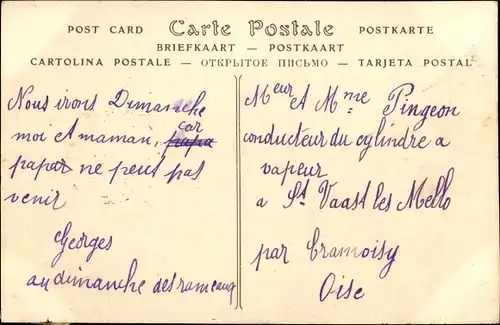 POST CARD Carte Postale POSTKARTE
BRIEFKAART — POSTKAART
CARTOLINA POSTALE — ОТКРЫТОЕ ПИСЬМО — TARJETA POSTAL
Nous irons Dimanche
moi et maman, car papa
papar ne peut pas
venir
Georges
au dimanche des rameaux
Meur et Mme Pingeon
conducteur du cylindre a
vapeur
a St Vaast les Mello
par Cramoisy
Oise